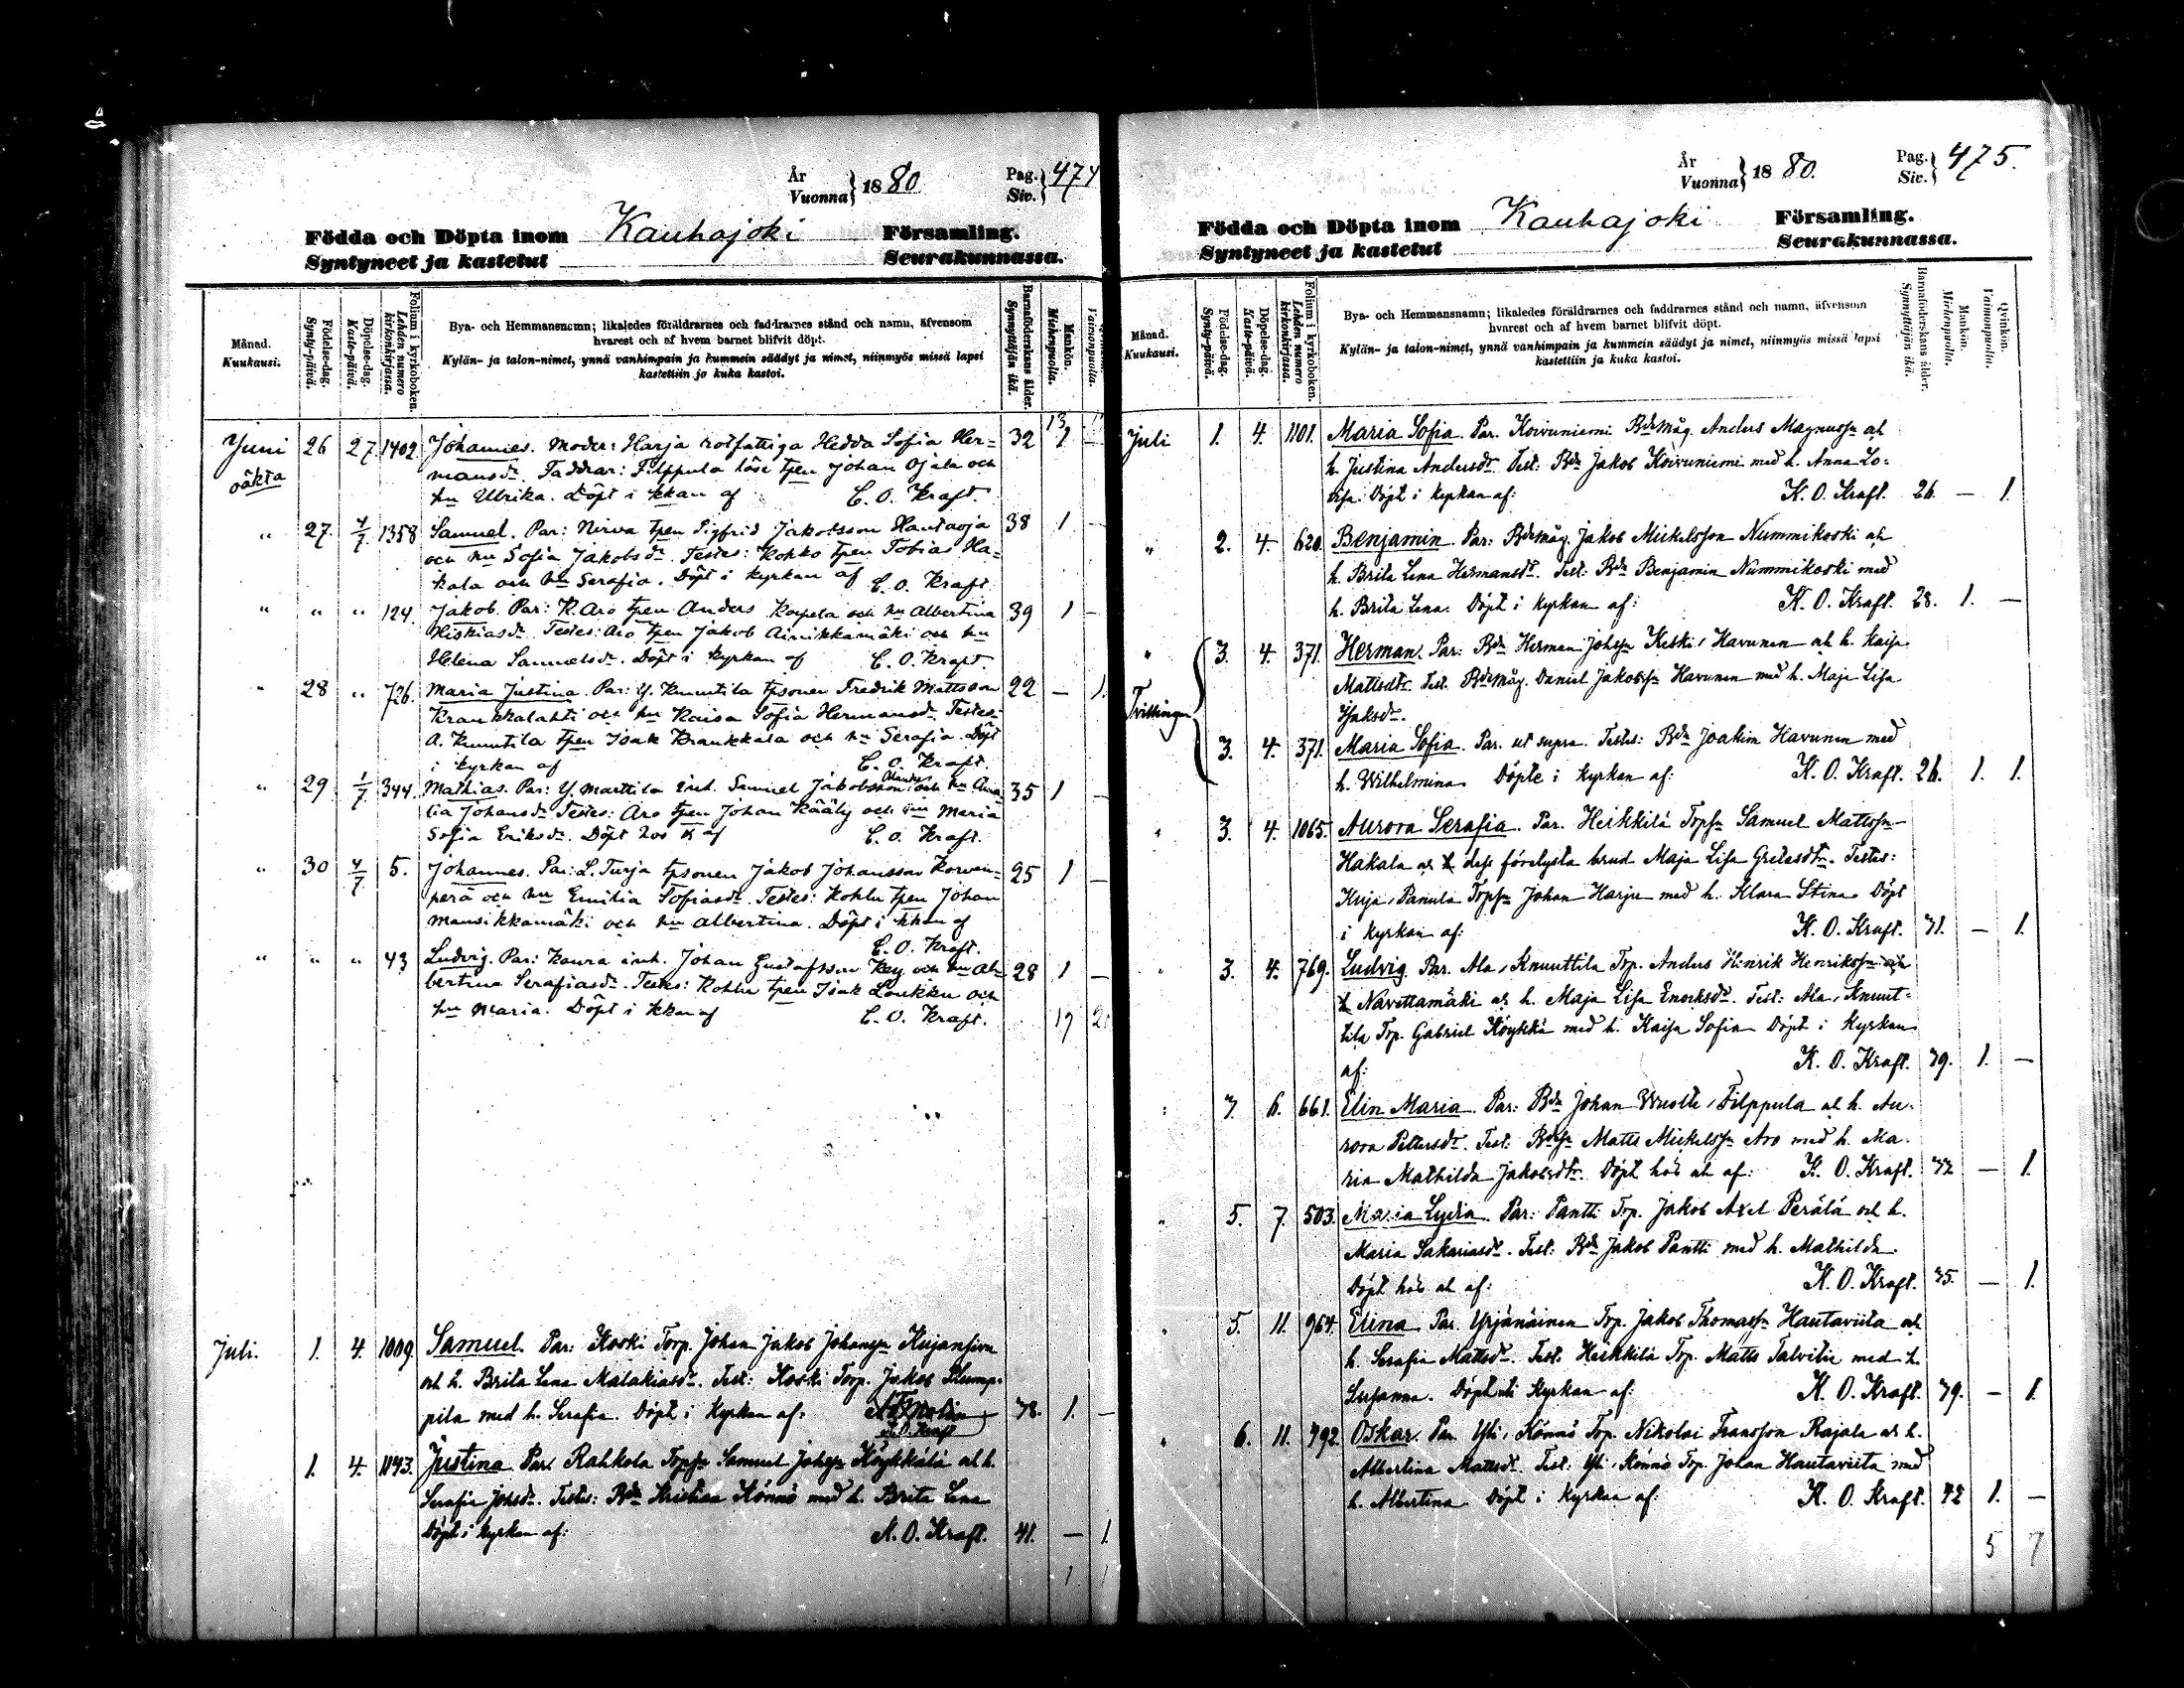 År
Vuonna } 1880
Pag.
Siv. } 474
Födda och Döpta inom Kauhajoki Församling.
Syntyneet ja kastetut Seurakunnassa.
Månad.
Kuukausi.
Födelse-dag.
Synty-päivä.
Döpelse-dag.
Kaste-päivä.
Folium i kyrkoboken.
Lehden numero kirkonkirjassa.
Bya- och Hemmansnamn; likaledes föräldrarnes och faddrarnes stånd och namn, äfvensom
hvarest och af hvem barnet blifvit döpt.
Kylän- ja talon-nimet, ynnä vanhimpain ja kummein säädyt ja nimet, niinmyös missä lapsi
kastettiin ja kuka kastoi.
Barnaföderskans ålder.
Synnyttäjän ikä.
Mankön.
Miehenpuolia.
Vaimonpuolia.
13
Juni 26 27 1402 Johannes. Moder: Harja rotfattiga Hedda Sofia Her= 32 1 –
oäkta mansdr. Faddrar: Filppula löse tpen Johan Ojala och
hu Ulrika. Döpt i kkan af C. O. Kraft.
" 27. 4/7. 1358 Samuel. Par: Nirva tpen Sigfrid Jakobsson Hautaoja 38 1 –
och hu Sofia Jakobsdr. Testes: Kokko tpen Tobias Ha=
kala och hu Serafia. Döpt i kyrkan af C. O. Kraft.
" " " 124. Jakob. Par: K. Aro tpen Anders Korpela och hu Albertina 39 1 –
Hiskiasdr. Testes: Aro tpen Jakob Ainikkamäki och hu
Helena Samuelsdr. Döpt i kyrkan af C. O. Kraft.
" 28 " 726. Maria Justina. Par: Y. Knuutila tpsonen Fredrik Mattsson 22 – 1.
Kraukkalahti och hu Kaisa Sofia Hermansdr. Testes:
A. Knuutila tpen Isak Kraukkala och hu Serafia. Döpt
i kyrkan af C. O. Kraft.
" 29 1/7 344. Mathias. Par: Y. Marttila inh. Samuel Jakobsson och hu Ama= 35 1 –
lia Johansdr. Testes: Aro tpen Johan Kääly och hu Maria
Sofia Eriksdr. Döpt hos K af C. O. Kraft.
" 30 4/7. 5. Johannes. Par: L. Turja tpsonen Jakob Johansson Korven= 25 1 –
perä och hu Emilia Sofiasdr. Testes: Kohlu tpen Johan
Mansikkamäki och hu Albertina. Döpt i kkan af
C. O. Kraft.
" " " 43 Ludvig. Par: Kaura inh. Johan Gustafsson Key och hu Al= 28 1 –
bertina Serafiasdr. Testes: Kohlu tpen Isak Loukku och
hu Maria. Döpt i kkan af C. O. Kraft.
19 2
Juli. 1. 4. 1009. Samuel. Par: Koski Torp. Johan Jakob Johansson Kujansivu
och h. Brita Lena Malakiasdr. Test: Koski Torp. Jakob Klemp=
pila med h. Serafia. Döpt i Kyrkan af: K. O. Kraft 78. 1. –
1. 4. 1043. Justina Par. Rahkola Torpsn Samuel Johssn Köykkälä och h.
Serafia Johsdr. Testes: Bdn Kristian Könnö med h. Brita Lena
Döpt i kyrkan af: K. O. Kraft. 41. – 1.
1 1
År
Vuonna } 1880.
Pag.
Siv. } 475.
Födda och Döpta inom Kauhajoki Församling.
Syntyneet ja kastetut Seurakunnassa.
Månad.
Kuukausi.
Födelse-dag.
Synty-päivä.
Döpelse-dag.
Kaste-päivä.
Folium i kyrkoboken.
Lehden numero kirkonkirjassa.
Bya- och Hemmansnamn; likaledes föräldrarnes och faddrarnes stånd och namn, äfvensom
hvarest och af hvem barnet blifvit döpt.
Kylän- ja talon-nimet, ynnä vanhimpain ja kummein säädyt ja nimet, niinmyös missä lapsi
kastettiin ja kuka kastoi.
Barnaföderskans ålder.
Synnyttäjän ikä.
Mankön.
Miehenpuolia.
Qvinkön.
Vaimonpuolia.
Juli 1. 4. 1101. Maria Sofia. Par. Koivuniemi Bdemåg. Anders Magnusson och
h. Justina Andersdr. Test: Bdn Jakob Koivuniemi med h. Anna Lo=
visa. Döpt i Kyrkan af: K. O. Kraft. 26. – 1.
" 2. 4. 620. Benjamin. Par: Bdemåg. Jakob Mickelsson Nummikoski och
h. Brita Lena Hermansdr. Test: Bdn Benjamin Nummikoski med
h. Brita Lena. Döpt i Kyrkan af: K. O. Kraft. 28. 1. –
" 3. 4. 371. Herman. Par: Bdn Herman Johssn Keski, Havunen och h. Kaisa
Mattsdtr. Test. Bdemåg. Daniel Jakobssn Havunen med h. Maja Lisa
Tvillingar Isaksdr.
3. 4. 371. Maria Sofia. Par. ut supra. Testes: Bdn Joakim Havunen med
h. Wilhelmina Döpte i Kyrkan af: K. O. Kraft. 26. 1. 1.
" 3. 4. 1065. Aurora Serafia. Par. Heikkilä Torpsn Samuel Mattssn
Hakala och dess förelysta brud Maja Lisa Gretasdtr. Testes:
Kuja, Panula Torpsn Johan Harju med h. Klara Stina Döpt
i kyrkan af: K. O. Kraft. 41. – 1.
" 3. 4. 769. Ludvig. Par. Ala, Knuuttila Trp. Anders Henrik Henrikssn och
h Navettamäki och h. Maja Lisa Enocksdr. Test: Ala, Knuut=
tila Trp. Gabriel Köykkä med h. Kaisa Sofia Döpt i Kyrkan
af: K. O. Kraft. 39. 1. –
" 3. 6. 661. Elin Maria. Par: Bdn Johan Wuolle, Filppula och h. Au=
rora Pettersdr. Test: Bdesn Matts Mickelssn Aro med h. Ma=
ria Mathilda Jakobsdtr. Döpt hos och af: K. O. Kraft. 32 – 1.
" 5. 7. 503. Maria Lydia. Par: Pantti Trp. Jakob Axel Perälä och h.
Maria Sakariasdr. Test: Bdn Jakob Pantti med h. Mathilda.
Döpt hos och af: K. O. Kraft. 35. – 1.
" 5. 11. 964. Elina Par. Yrjänäinen Trp. Jakob Thomassn Hautaviita och
h. Serafia Mattsdr. Test. Heikkilä Trp. Matts Talvitie med h.
Susanna. Döpt i Kyrkan af: K. O. Kraft. 39. – 1.
" 6. 11. 792. Oskar. Par. Yli, Könnö Trp. Nikolai Fransson Rajala och h.
Albertina Mattsdr. Test: Yli, Könnö Trp. Johan Hautaviita med
h. Albertina Döpt i Kyrkan af: K. O. Kraft. 42 1. –
5 7